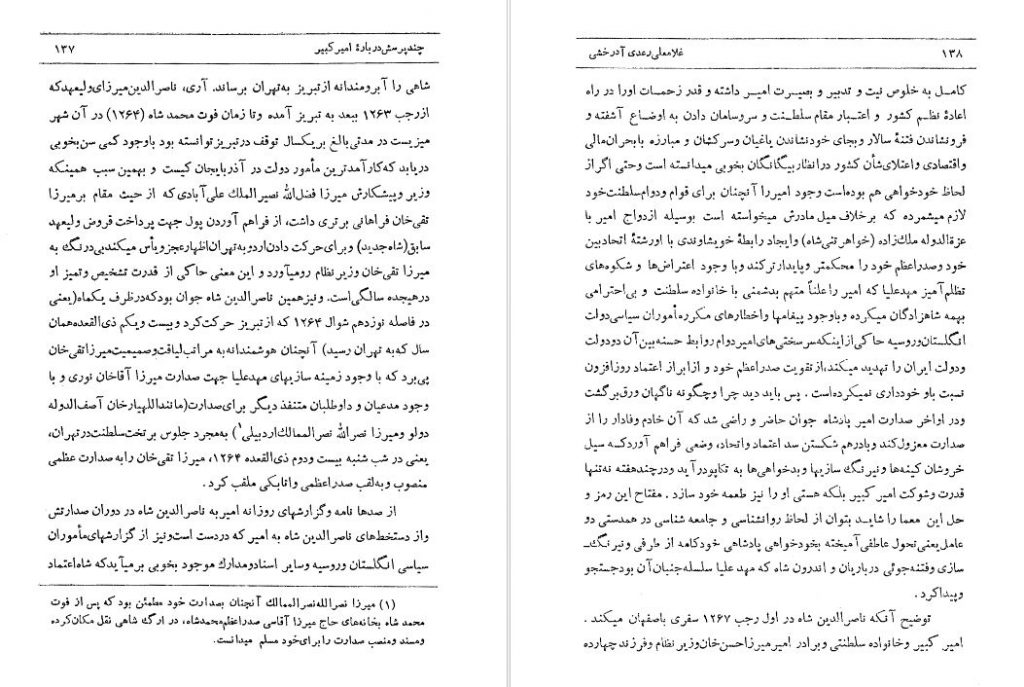 چند پرسش دربارهٔ امیرکبیر ۱۳۷
شاهی را آبرومندانه از تبریز به‌تهران برساند. آری، ناصرالدین‌میرزای‌ولیعهدکه
ازرجب ۱۲۶۳ ببعد به تبریز آمده وتا زمان فوت محمد شاه (۱۲۶۴) در آن شهر
میزیست در مدتی‌بالغ بریکسال توقف درتبریزتوانسته بود باوجود کمی سن‌بخوبی
دریابد که‌کارآمدترین مأمور دولت در آذربایجان کیست و بهمین سبب همینکه
وزیر وپیشکارش میرزا فضل‌الله نصیرالملك علی‌آبادی که از حیث مقام برمیرزا
تقی‌خان فراهانی برتری داشت، از فراهم آوردن پول جهت پرداخت قروض ولیعهد
سابق(شاه‌جدید) وبرای‌حرکت دادن‌اردو به‌تهران‌اظهارعجزویأس میکندبی‌درنگ به
میرزا تقی‌خان وزیر نظام رومیآورد و این معنی حاکی از قدرت تشخیص وتمیز او
درهیجده سالگی‌است. ونیزهمین ناصرالدین شاه جوان بودکه‌درظرف یکماه(یعنی
در فاصله نوزدهم شوال ۱۲۶۴ که ازتبریز حرکت‌کرد وبیست ویکم ذی‌القعده‌همان
سال که‌به تهران رسید) آنچنان هوشمندانه‌به مراتب‌لیاقت‌وصمیمیت‌میرزا تقی‌خان
پی‌برد که با وجود زمینه سازیهای مهدعلیا جهت صدارت میرزا آقاخان نوری و با
وجود مدعیان و داوطلبان متنفذ دیگر برای‌صدارت(مانند‌اللهیارخان آصف‌الدوله
دولو ومیرزا نصرالله نصرالممالك‌اردبیلی۱) به‌مجرد جلوس برتخت‌سلطنت‌درتهران،
یعنی در شب شنبه بیست ودوم ذی‌القعده ۱۲۶۴، میرزا تقی‌خان رابه صدارت عظمی
منصوب وبه‌لقب صدراعظمی واتابکی ملقب کرد.
از صدها نامه وگزارشهای روزانه امیربه ناصرالدین شاه در دوران صدارتش
واز دستخط‌های ناصرالدین شاه به امیر که دردست است‌ونیز از گزارشهای‌مأموران
سیاسی انگلستان وروسیه وسایر اسنادومدارك موجود بخوبی برمیآیدکه شاه‌اعتماد
(۱) میرزا نصرالله‌نصرالممالك آنچنان بصدارت خود مطمئن بود که پس از فوت
محمد شاه بخانه‌های حاج میرزا آقاسی صدراعظم‌محمدشاه، در ارگ شاهی نقل مکان‌کرده
ومسند ومنصب صدارت رابرای‌خود مسلم میدانست.
غلامعلی رعدی آدرخشی ۱۳۸
کامل به خلوص نیت و تدبیر و بصیرت امیر داشته و قدر زحمات اورا در راه
اعادهٔ نظم کشور و اعتبار مقام سلطنت و سروسامان دادن به اوضاع آشفته و
فرونشاندن فتنهٔ سالار وبجای خودنشاندن یاغیان وسرکشان و مبارزه بابحران‌مالی
واقتصادی واعتلای‌شأن کشور درانظاربیگانگان بخوبی میدانسته است وحتی اگراز
لحاظ خودخواهی هم بوده‌است وجود امیررا آنچنان برای قوام ودوام‌سلطنت‌خود
لازم میشمرده که برخلاف میل مادرش میخواسته است بوسیله ازدواج امیر با
عزةالدوله ملك‌زاده (خواهر تنی‌شاه) وایجاد رابطهٔ خویشاوندی با اورشتهٔ اتحادبین
خود وصدراعظم خود را محکمتر وپایدارترکند وبا وجود اعتراض‌ها و شکوه‌های
تظلم‌آمیز مهدعلیا که امیر راعلناً متهم بدشمنی با خانواده سلطنت و بی‌احترامی
بهمه شاهزادگان میکرده وباوجود پیغامها واخطارهای مکرره‌مأموران سیاسی‌دولت
انگلستان‌وروسیه حاکی‌ازاینکه‌سرسختی‌های‌امیردوام روابط حسنه‌بین‌آن دودولت
ودولت ایران را تهدید میکند،ازتقویت صدراعظم خود و ازابراز اعتماد روزافزون
نسبت باو خودداری نمیکرده‌است. پس باید دید چرا وچگونه ناگهان ورق‌برگشت
ودر اواخر صدارت امیر پادشاه جوان حاضر و راضی شد که آن خادم وفادار را از
صدارت معزول‌کند وبادرهم شکستن سد اعتماد واتحاد، وضعی فراهم آوردکـه سیل
خروشان کینه‌ها ونیرنگ سازیها وبدخواهی‌ها به تکاپودرآید ودرچندهفته نه‌تنها
قدرت وشوکت امیر کبیر بلکه هستی او را نیز طعمه خود سازد. مفتاح این رمز و
حل این معما را شایـد بتوان از لحاظ روانشناسی و جامعه شناسی در همدستی دو
عامل‌یعنی‌تحول عاطفی‌آمیخته بخودخواهی پادشاهی خودکامه از طرفی ونیرنگ‌ـ
سازی وفتنه‌جوئی درباریان و اندرون شاه که مهد علیا سلسله‌جنبان‌آن بودجستجو
وپیداکرد.
توضیح آنکه ناصرالدین شاه در اول رجب ۱۲۶۷ سفری باصفهان میکند.
امیر کبیر وخانواده سلطنتی وبرادر امیرمیرزاحسن‌خان‌وزیر نظام وفرزند چهارده